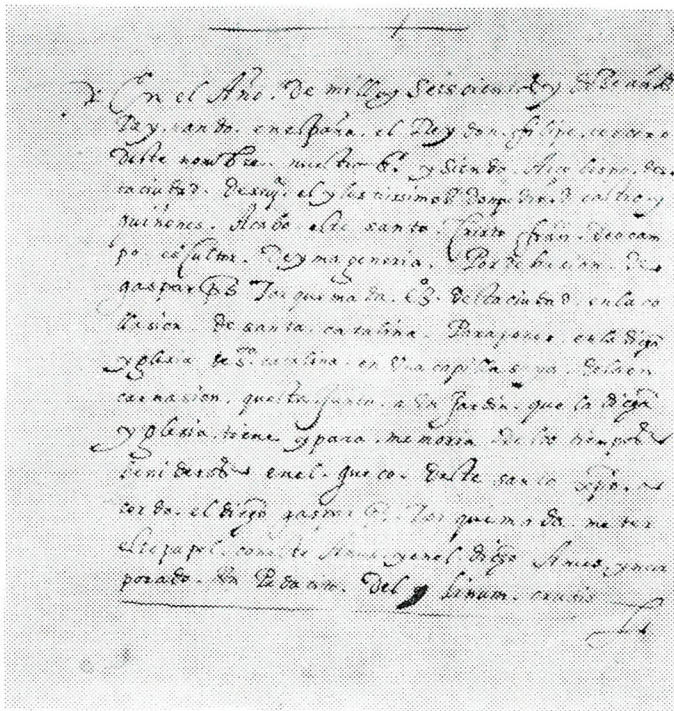 En el Año. De mill y seiscientos y doze años
Reynando. en españa. el Rey don. filipe. tercero
deste nombre. nuestro s.r y siendo. Arçobispo. des
ta ciudad. de seuj.ª el yllustrissimo don pedro. d castro y
quiñones. Acabo. este santo. Cristo fran.co de ocam
po. escultor. De ymageneria. Por debosion. de
gaspar Torquemada. v.º destaciudad. en la co
llasion. de santa. catalina. Para poner. en la digª
yglesia de s.ta catalina. en Una capilla suya. de la en
carnasion. questa. junto. a Un Jardin. que la digª
yglesia. tiene y para. memoria. de los tiempos
benideros en el. gueco. deste santo xpo. a
cordo. el digo gaspar Torquemada. meter
este papel. con y en el. digo yncor
porado. Un Pedaço. Del linum. crusis